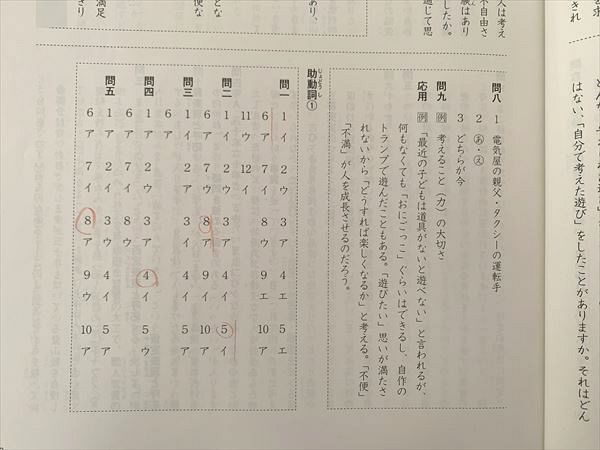 はない、「自分で考えた遊び」をしたことがありますか。それはどん
人は考え
不自由さ
したか。
通じて思
あり、
とな
便な
満足
問八 1 電気屋の親父・タクシーの運転手
2 あ・え
3 どちらが今
問九 例 考えること（力）の大切さ
応用 例 「最近の子どもは道具がないと遊べない」と言われるが、
何もなくても「おにごっこ」ぐらいはできるし、自作の
トランプで遊んだこともある。「遊びたい」思いが満たさ
れないから「どうすれば楽しくなるか」と考える。「不便」
「不満」が人を成長させるのだろう。
助動詞① じょどうし
問一 1 イ 2 ウ 3 ア 4 エ 5 エ
6 ア 7 イ 8 ウ 9 エ 10 ア
11 ウ 12 イ
問二 1 イ 2 ウ 3 ア 4 イ 5 イ
6 ア 7 ウ 8 ア 9 イ 10 ア
問三 1 イ 2 ア 3 イ 4 イ 5 ア
6 ア
問四 1 ア 2 ウ 3 ア 4 イ 5 ウ
6 ア 7 イ 8 ウ
問五 1 ア 2 イ 3 ウ 4 イ 5 ア
6 ア 7 イ 8 ア 9 ウ 10 ア